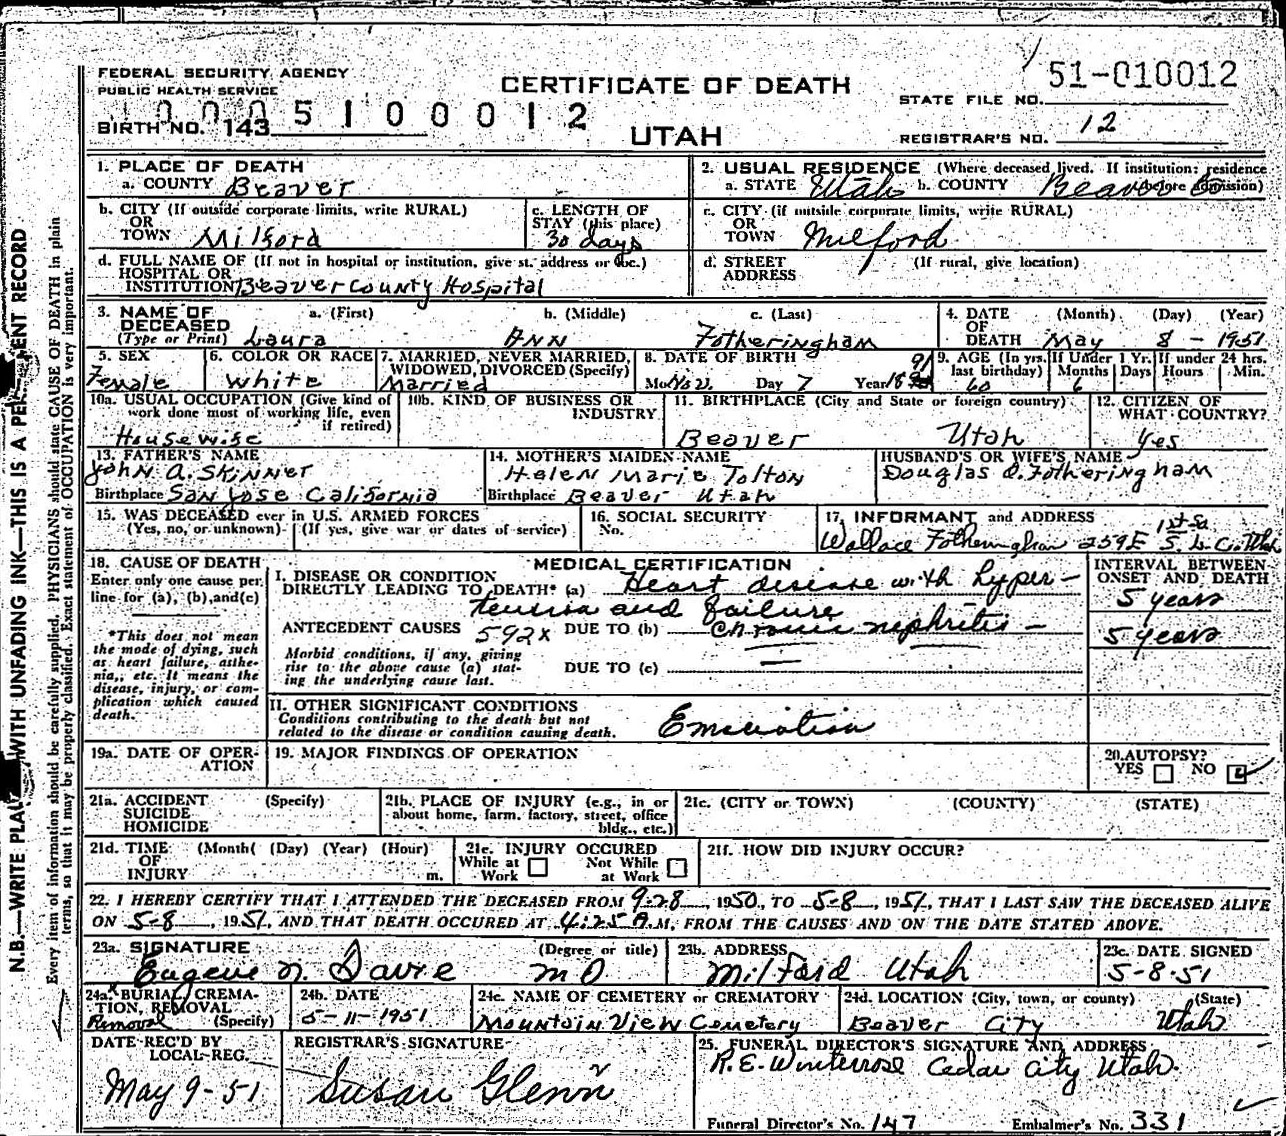 FEDERAL SECURITY AGENCY
PUBLIC HEALTH SERVICE
CERTIFICATE OF DEATH
UTAH
51-010012
STATE FILE NO.
REGISTRAR'S NO. 12
BIRTH NO. 143
1. PLACE OF DEATH
a. COUNTY Beaver
2. USUAL RESIDENCE (Where deceased lived. If institution: residence before admission)
a. STATE Utah b. COUNTY Beaver Co
b. CITY (If outside corporate limits, write RURAL)
OR
TOWN Milford
c. LENGTH OF
STAY (this place)
30 days
c. CITY (if outside corporate limits, write RURAL)
OR
TOWN Milford
d. FULL NAME OF (If not in hospital or institution, give st. address or loc.)
HOSPITAL OR
INSTITUTION Beaver County Hospital
d. STREET (If rural, give location)
ADDRESS
3. NAME OF DECEASED
(Type or Print)
a. (First) b. (Middle) c. (Last)
Laura Ann Fotheringham
4. DATE OF DEATH (Month) (Day) (Year)
May 8 - 1951
5. SEX
Female
6. COLOR OR RACE
White
7. MARRIED, NEVER MARRIED,
WIDOWED, DIVORCED (Specify)
Married
8. DATE OF BIRTH
Mo. Nov. Day 7 Year 18 91
9. AGE (In yrs. last birthday) If Under 1 Yr. If under 24 hrs.
Months Days Hours Min.
60 6
10a. USUAL OCCUPATION (Give kind of
work done most of working life, even
if retired)
Housewife
10b. KIND OF BUSINESS OR
INDUSTRY
11. BIRTHPLACE (City and State or foreign country)
Beaver Utah
12. CITIZEN OF
WHAT COUNTRY?
Yes
13. FATHER'S NAME
John A. Skinner
Birthplace San Jose California
14. MOTHER'S MAIDEN NAME
Helen Marie Tolton
Birthplace Beaver Utah
HUSBAND'S OR WIFE'S NAME
Douglas D. Fotheringham
15. WAS DECEASED ever in U.S. ARMED FORCES
(Yes, no, or unknown) (If yes, give war or dates of service)
16. SOCIAL SECURITY
No.
17. INFORMANT and ADDRESS
Wallace Fotheringham 259 E 1st So S. L. C. Utah
18. CAUSE OF DEATH
Enter only one cause per
line for (a), (b), and (c)
*This does not mean
the mode of dying, such
as heart failure, asthe-
nia, etc. It means the
disease, injury, or com-
plication which caused
death.
MEDICAL CERTIFICATION
I. DISEASE OR CONDITION
DIRECTLY LEADING TO DEATH* (a) Heart disease with hyper-
tension and failure
ANTECEDENT CAUSES 592x DUE TO (b) chronic nephritis -
Morbid conditions, if any, giving
rise to the above cause (a) stat-
ing the underlying cause last.
DUE TO (c)
INTERVAL BETWEEN
ONSET AND DEATH
5 years
5 years
II. OTHER SIGNIFICANT CONDITIONS
Conditions contributing to the death but not
related to the disease or condition causing death.
Emaciation
19a. DATE OF OPER-
ATION
19. MAJOR FINDINGS OF OPERATION
20. AUTOPSY?
YES NO
21a. ACCIDENT (Specify)
SUICIDE
HOMICIDE
21b. PLACE OF INJURY (e.g., in or
about home, farm, factory, street, office
bldg., etc.)
21c. (CITY or TOWN) (COUNTY) (STATE)
21d. TIME (Month) (Day) (Year) (Hour)
OF
INJURY m.
21e. INJURY OCCURED
While at Work Not While at Work
21f. HOW DID INJURY OCCUR?
22. I HEREBY CERTIFY THAT I ATTENDED THE DECEASED FROM 9-28, 1950, TO 5-8, 1951, THAT I LAST SAW THE DECEASED ALIVE
ON 5-8, 1951, AND THAT DEATH OCCURED AT 4:25 A.M, FROM THE CAUSES AND ON THE DATE STATED ABOVE.
23a. SIGNATURE (Degree or title)
Eugene N. Davie MD
23b. ADDRESS
Milford Utah
23c. DATE SIGNED
5-8-51
24a. BURIAL, CREMA-
TION, REMOVAL
(Specify)
Removal
24b. DATE
5-11-1951
24c. NAME OF CEMETERY or CREMATORY
Mountain View Cemetery
24d. LOCATION (City, town, or county) (State)
Beaver City Utah
DATE REC'D BY
LOCAL REG.
May 9-51
REGISTRAR'S SIGNATURE
Susan Glenn
25. FUNERAL DIRECTOR'S SIGNATURE AND ADDRESS
R.E. Winterrose Cedar City Utah.
Funeral Director's No. 147 Embalmer's No. 331
10005100012
Every item of information should be carefully supplied. PHYSICIANS should state CAUSE OF DEATH in plain
terms, so that it may be properly classified. Exact statement of OCCUPATION is very important.